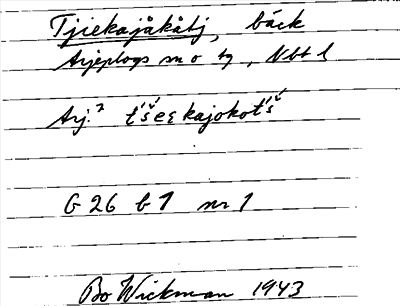 Tjiekajåkåtj, bäck
Arjeplogs sn o tg, Nbt l
Arj.² t́šeękajokot́š
G 26 b 1 nr 1
Bo Wickman 1943